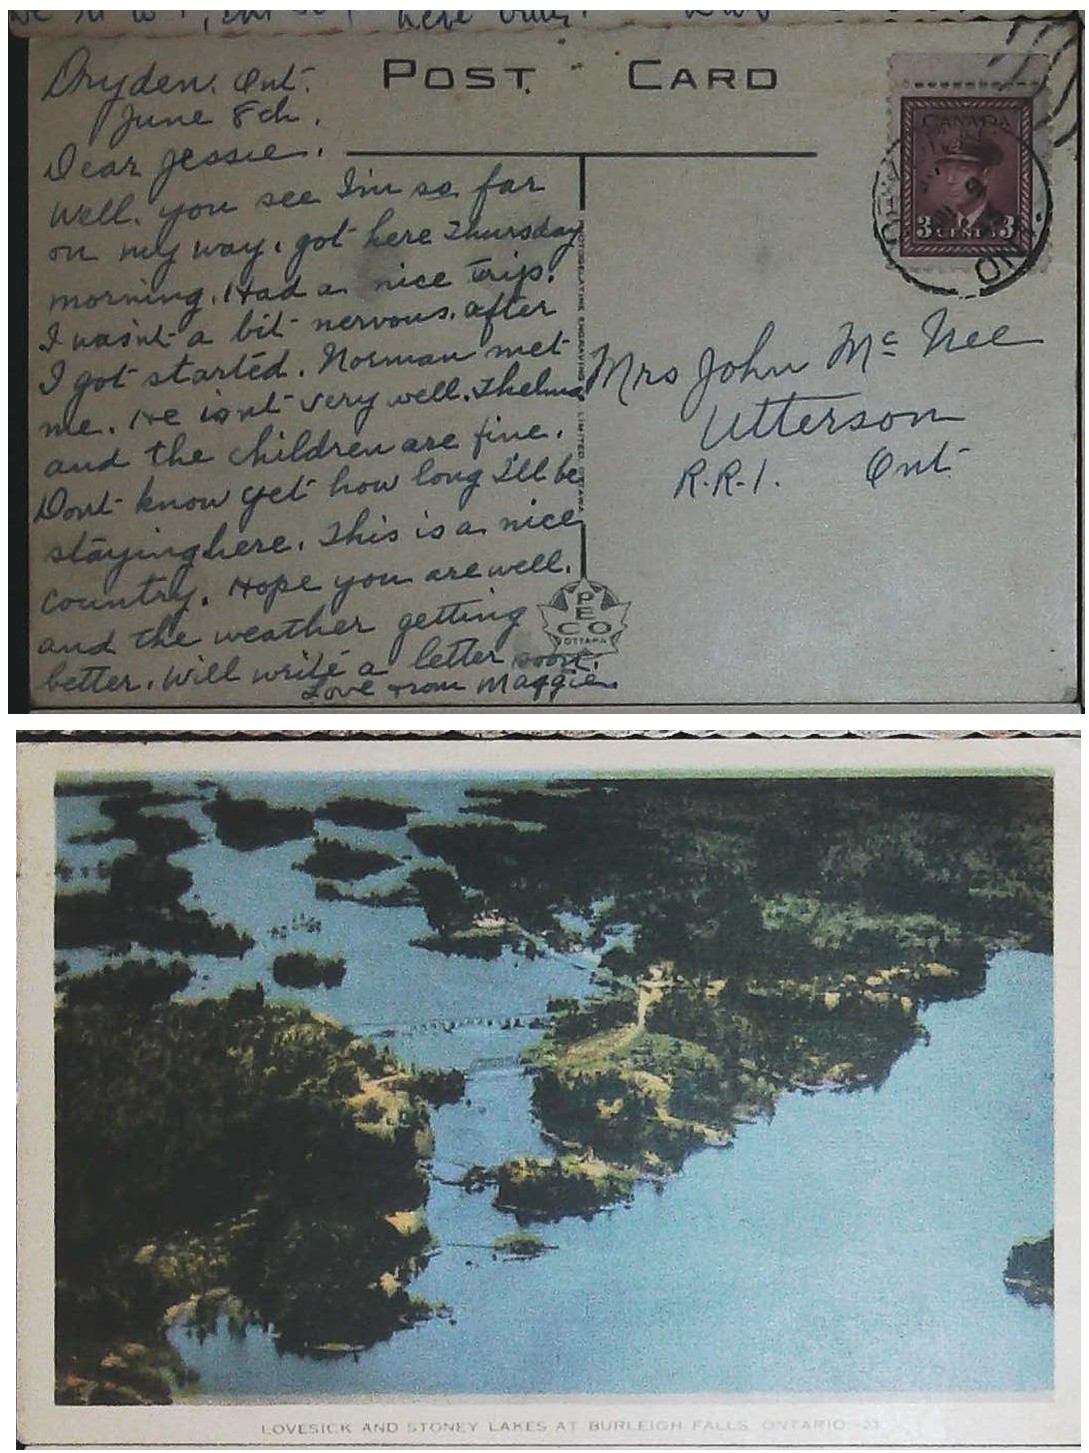 POST CARD
Dryden. Ont.
June 8th.
Dear Jessie.
Well. you see I'm so far
on my way. got here Thursday
morning. Had a nice trip.
I wasn't a bit nervous. after
I got started. Norman met
me. He isn't very well. Thelma
and the children are fine.
Dont know yet how long I'll be
staying here. This is a nice
country. Hope you are well.
and the weather getting
better. Will write a letter soon.
Love from Maggie.
PHOTOGELATINE ENGRAVING LIMITED, OTTAWA
PECO
OTTAWA
CANADA
3 CENTS 3
ONT.
Mrs John Mc Nee
Utterson
R.R.1. Ont.
LOVESICK AND STONEY LAKES AT BURLEIGH FALLS, ONTARIO -23